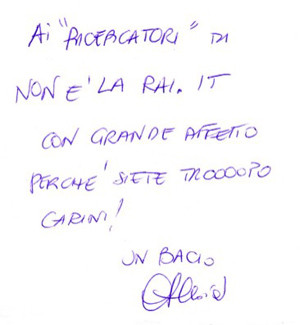 Ai "RICERCATORI" DI
NON E' LA RAI. IT
CON GRANDE AFFETTO
PERCHE' SIETE TROOOOPO
CARINI!
UN BACIO